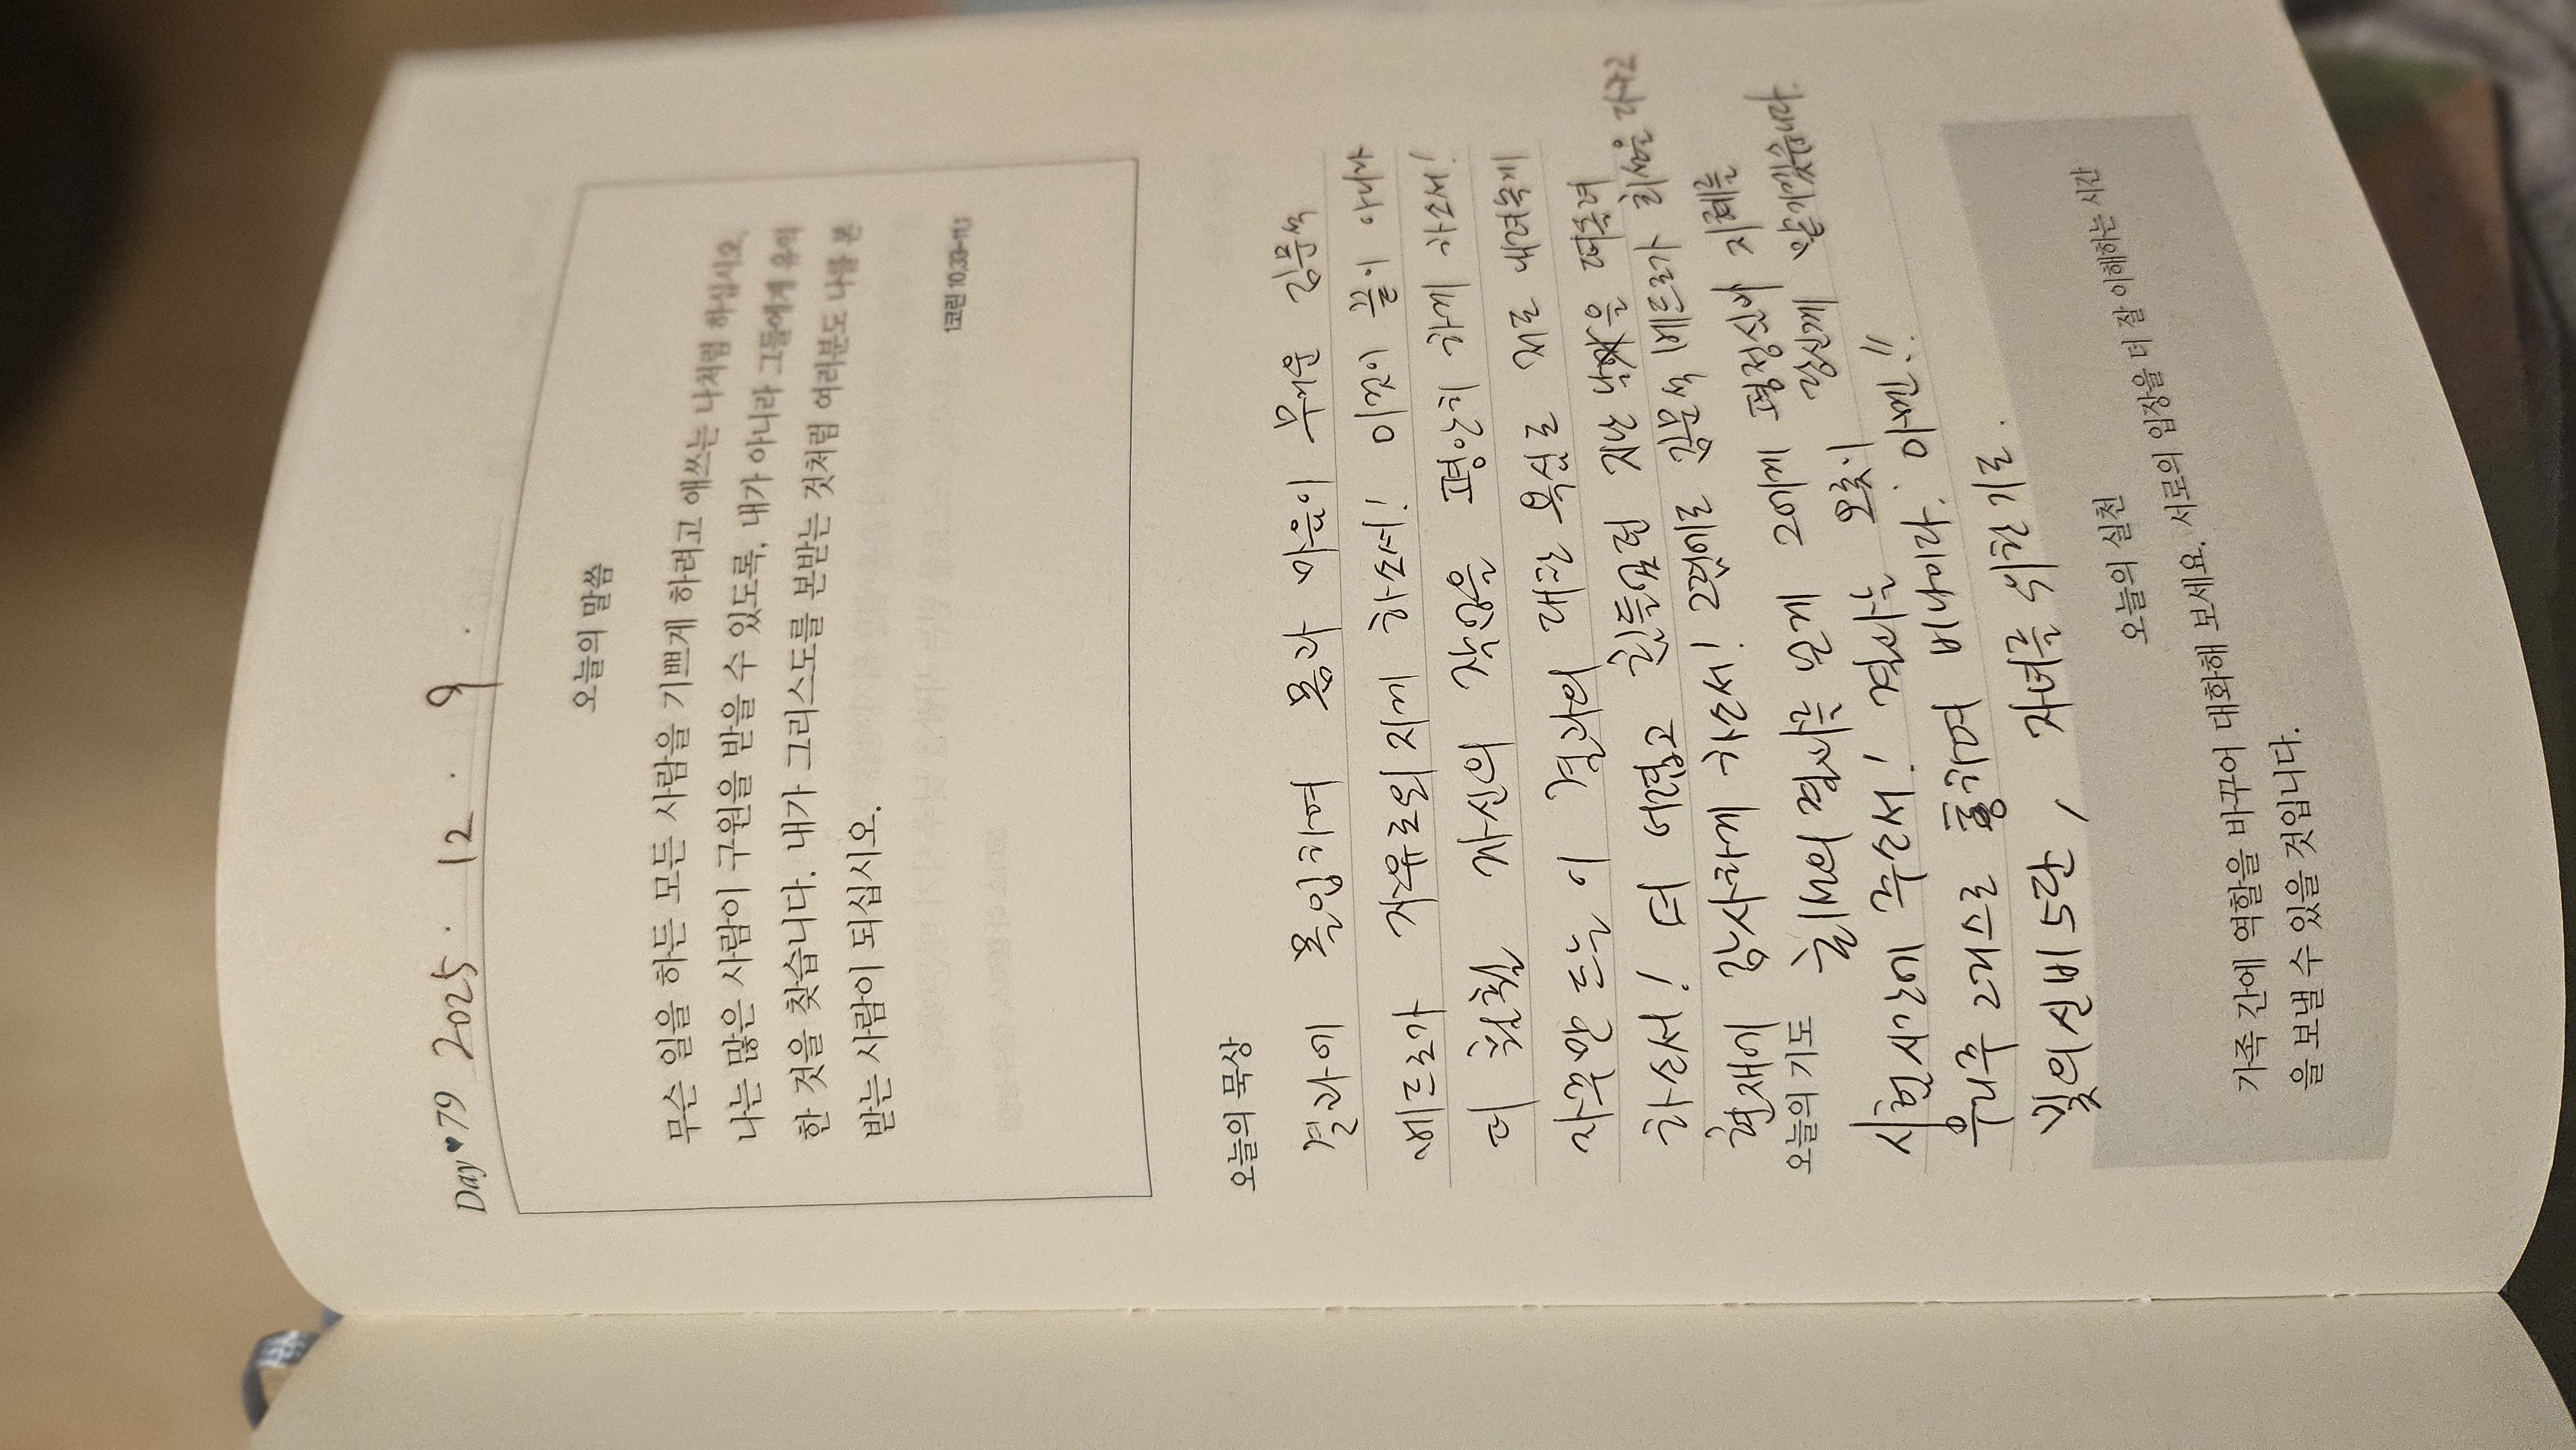 Day♥79 2025. 12. 9.
오늘의 말씀
무슨 일을 하든 모든 사람을 기쁘게 하려고 애쓰는 나처럼 하십시오.
나는 많은 사람이 구원을 받을 수 있도록, 내가 아니라 그들에게 유익
한 것을 찾습니다. 내가 그리스도를 본받는 것처럼 여러분도 나를 본
받는 사람이 되십시오.
1코린 10,33-11,1
오늘의 묵상
결과에 몰입하여 몸과 마음이 무거운 김문석
베드로가 자유로워지게 하소서! 이것이 끝이 아니라
더 힘찬 자신의 작업을 평안히 하게 하소서!
자꾸만 드는 이 결과의 대한 욕심도 제로 내려놓게
하소서! 더 어렵고 힘들었던 지난 날을 떠올려
현재에 감사하게 하소서! 2젬마로 김문석 베드로가 최선을 다하고
오늘의 기도
홀리M의 결과를 보게 20에게 평정심과 지혜를
시험시간에 주소서! 결과는 오롯이 당신께 맡기겠습니다.
우리주 그리스도 통하여 비나이다. 아멘!!
빛의신비 5단, 자녀를 위한 기도.
오늘의 실천
가족 간에 역할을 바꾸어 대화해 보세요. 서로의 입장을 더 잘 이해하는 시간
을 보낼 수 있을 것입니다.